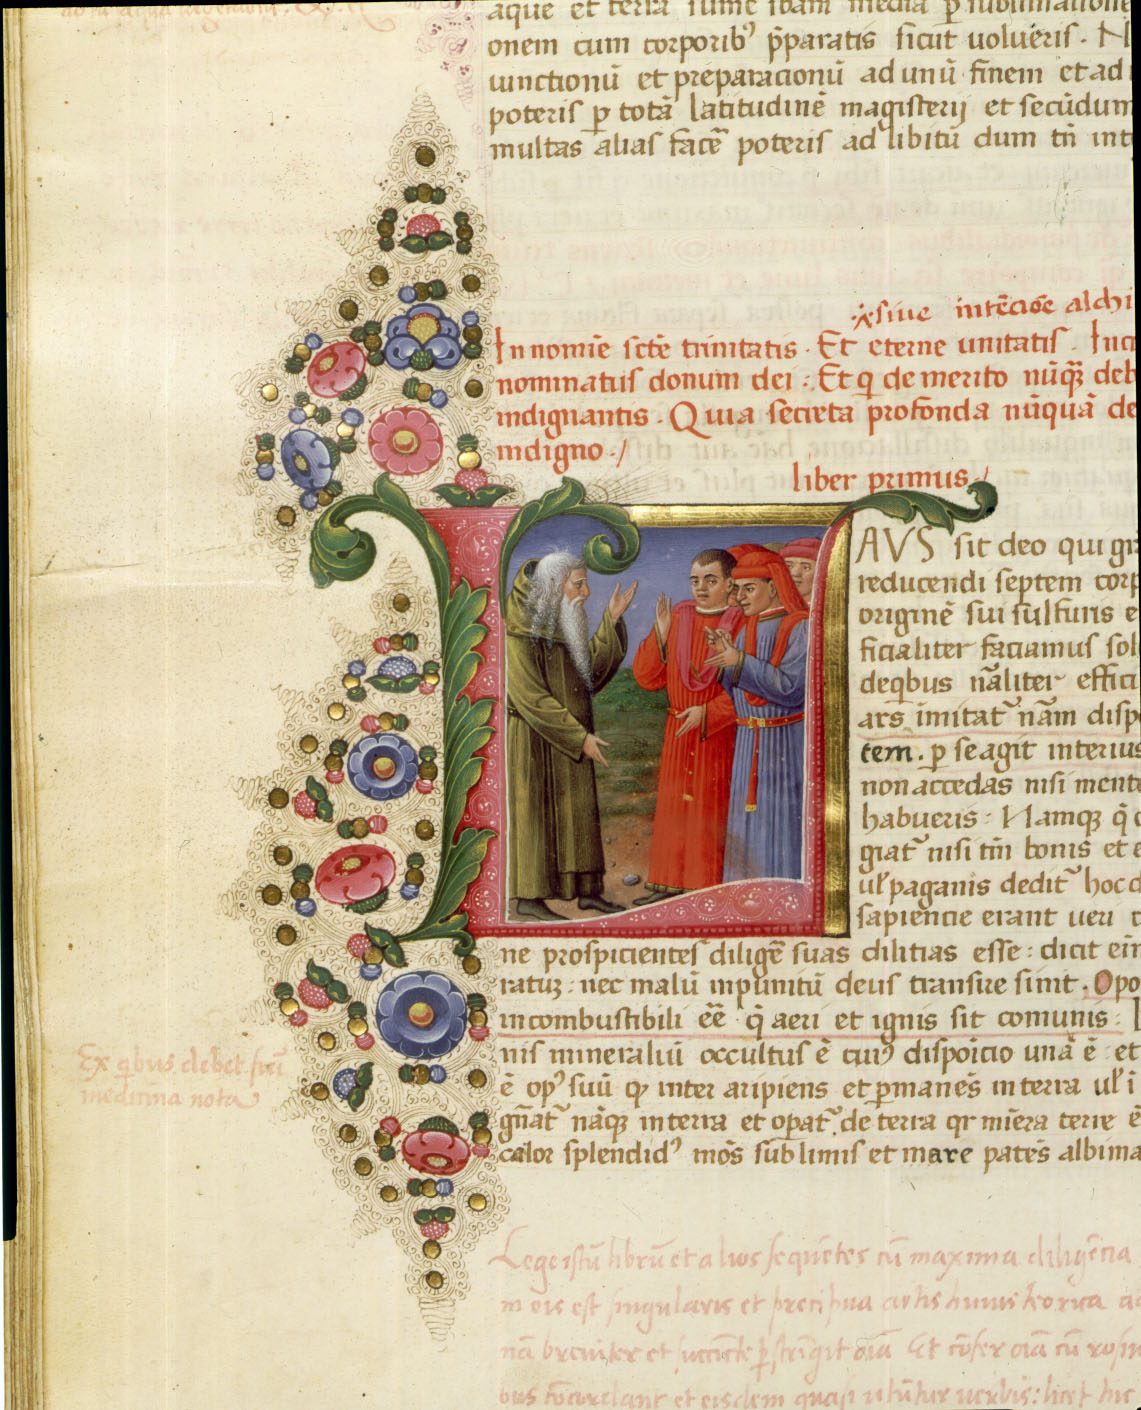 aque et terra sume ibam media p̱ sublimatione
onem cum corporibꝰ p̄paratis sicut uolueris. N
uinctionū et preparacionū ad unū finem et ad
poteris p̱ totā latitudinē magisterij et secūdum
multas alias facē poteris ad libitū dum tn̄ int
siue intēcōe alchi
In nomīe sctē trinitatis. Et eterne unitatis. Inci
nominatus donum dei: Et q̄ de merito nūꝗ̄ deb
indignantis. Quia secreta profonda nūquā de
indigno./
liber primus./
LAVS sit deo qui gr
reducendi septem corp
originē sui sulfuris e
ficialiter faciamus sol
de qͥbus nāliter effici
ars imitat᷑ nām disp
tem. p̱ se agit interius
non accedas nisi mente
habueris: Namqꝫ q̄
giat᷑ nisi tm̄ bonis et
ul̓ paganis dedit᷑ hoc d
sapiencie erant ueri
ne prospicientes diligē suas dilitias esse: dicit eīn
ratuꝫ: nec malū inpunitū deus transire sinit. Opo
incombustibili ēe q̄ aeri et ignis sit comunis:
nis mineraliū occultus ē cuiꝰ dispōicio unā ē et
ē opꝰ suū qꝫ inter aripiens et p̱manēs in terra ul̓ i
gn̄at᷑ nāqꝫ in terra et op̱at᷑ de terra qr mīera terre e
calor splendidꝰ mōs sublimis et mare patēs albima
Ex qͥbus debet fieri
medicina nota
Lege istū librū et alios sequētes cū maxima diligēcia
in eis est singularis et precipua artis huius teorica
nā breuiter et succīcte p̱strīgit oīa Et cōfer oīa cū
et eisdem quasi utūtur uerbis: licet hic